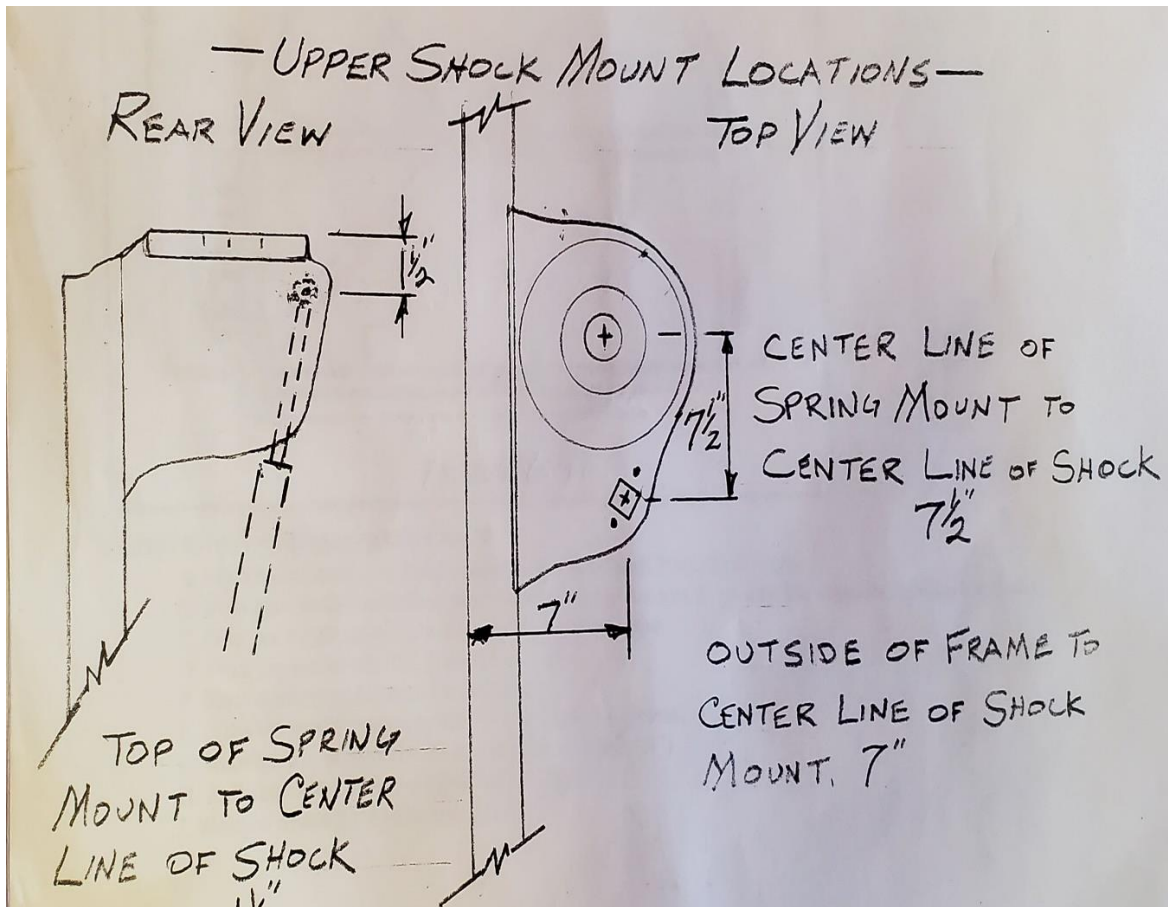 — UPPER SHOCK MOUNT LOCATIONS —
REAR VIEW
TOP VIEW
1½"
CENTER LINE OF
SPRING MOUNT TO
CENTER LINE OF SHOCK
7½"
7½"
7"
OUTSIDE OF FRAME TO
CENTER LINE OF SHOCK
MOUNT. 7"
TOP OF SPRING
MOUNT TO CENTER
LINE OF SHOCK